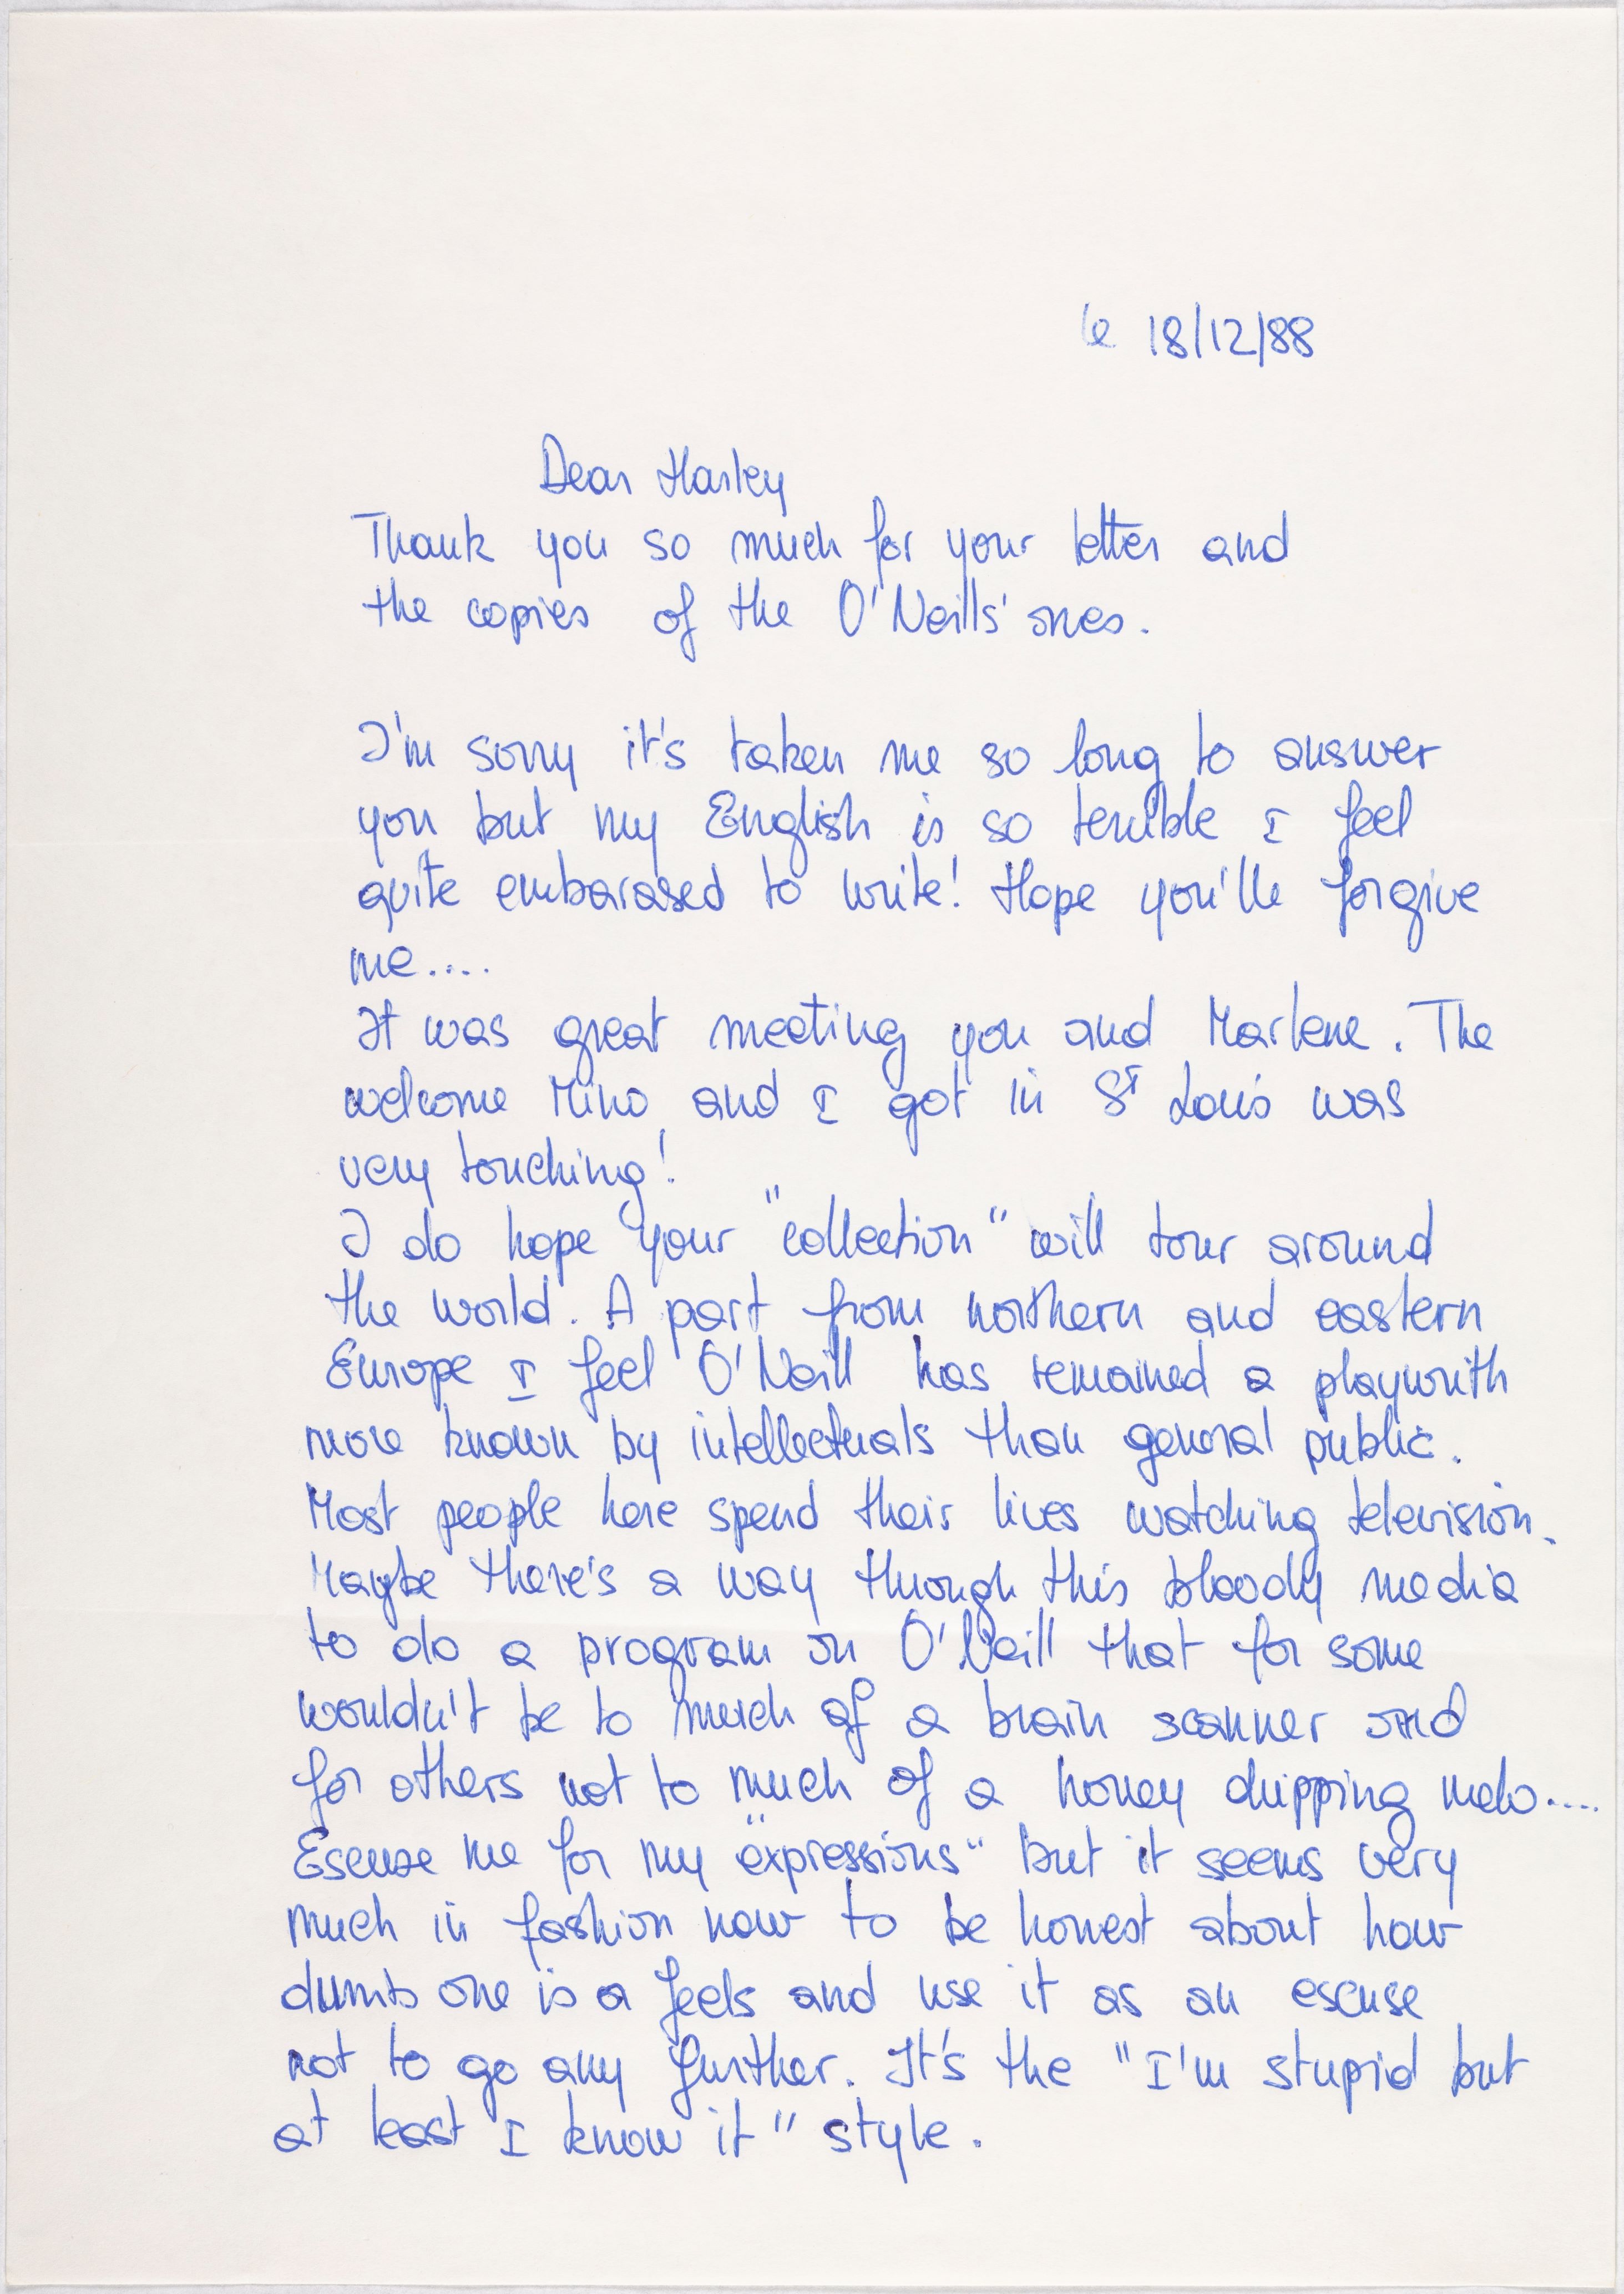 le 18/12/88
Dear Harley
Thank you so much for your letter and
the copies of the O'Neills' ones.
I'm sorry it's taken me so long to answer
you but my English is so terrible I feel
quite embarased to write! Hope you'lle forgive
me....
It was great meeting you and Marlene. The
welcome Mino and I got in St Louis was
very touching!
I do hope your "collection" will tour around
the world. A part from northern and eastern
Europe I feel O'Neill has remained a playwrith
more known by intellectuals than general public.
Most people here spend their lives watching television.
Maybe there's a way through this bloody media
to do a program on O'Neill that for some
wouldn't be to much of a brain scanner and
for others not to much of a honey dripping melo....
Escuse me for my "expressions" but it seems very
much in fashion now to be honest about how
dumb one is a feels and use it as an escuse
not to go any further. It's the "I'm stupid but
at least I know it" style.